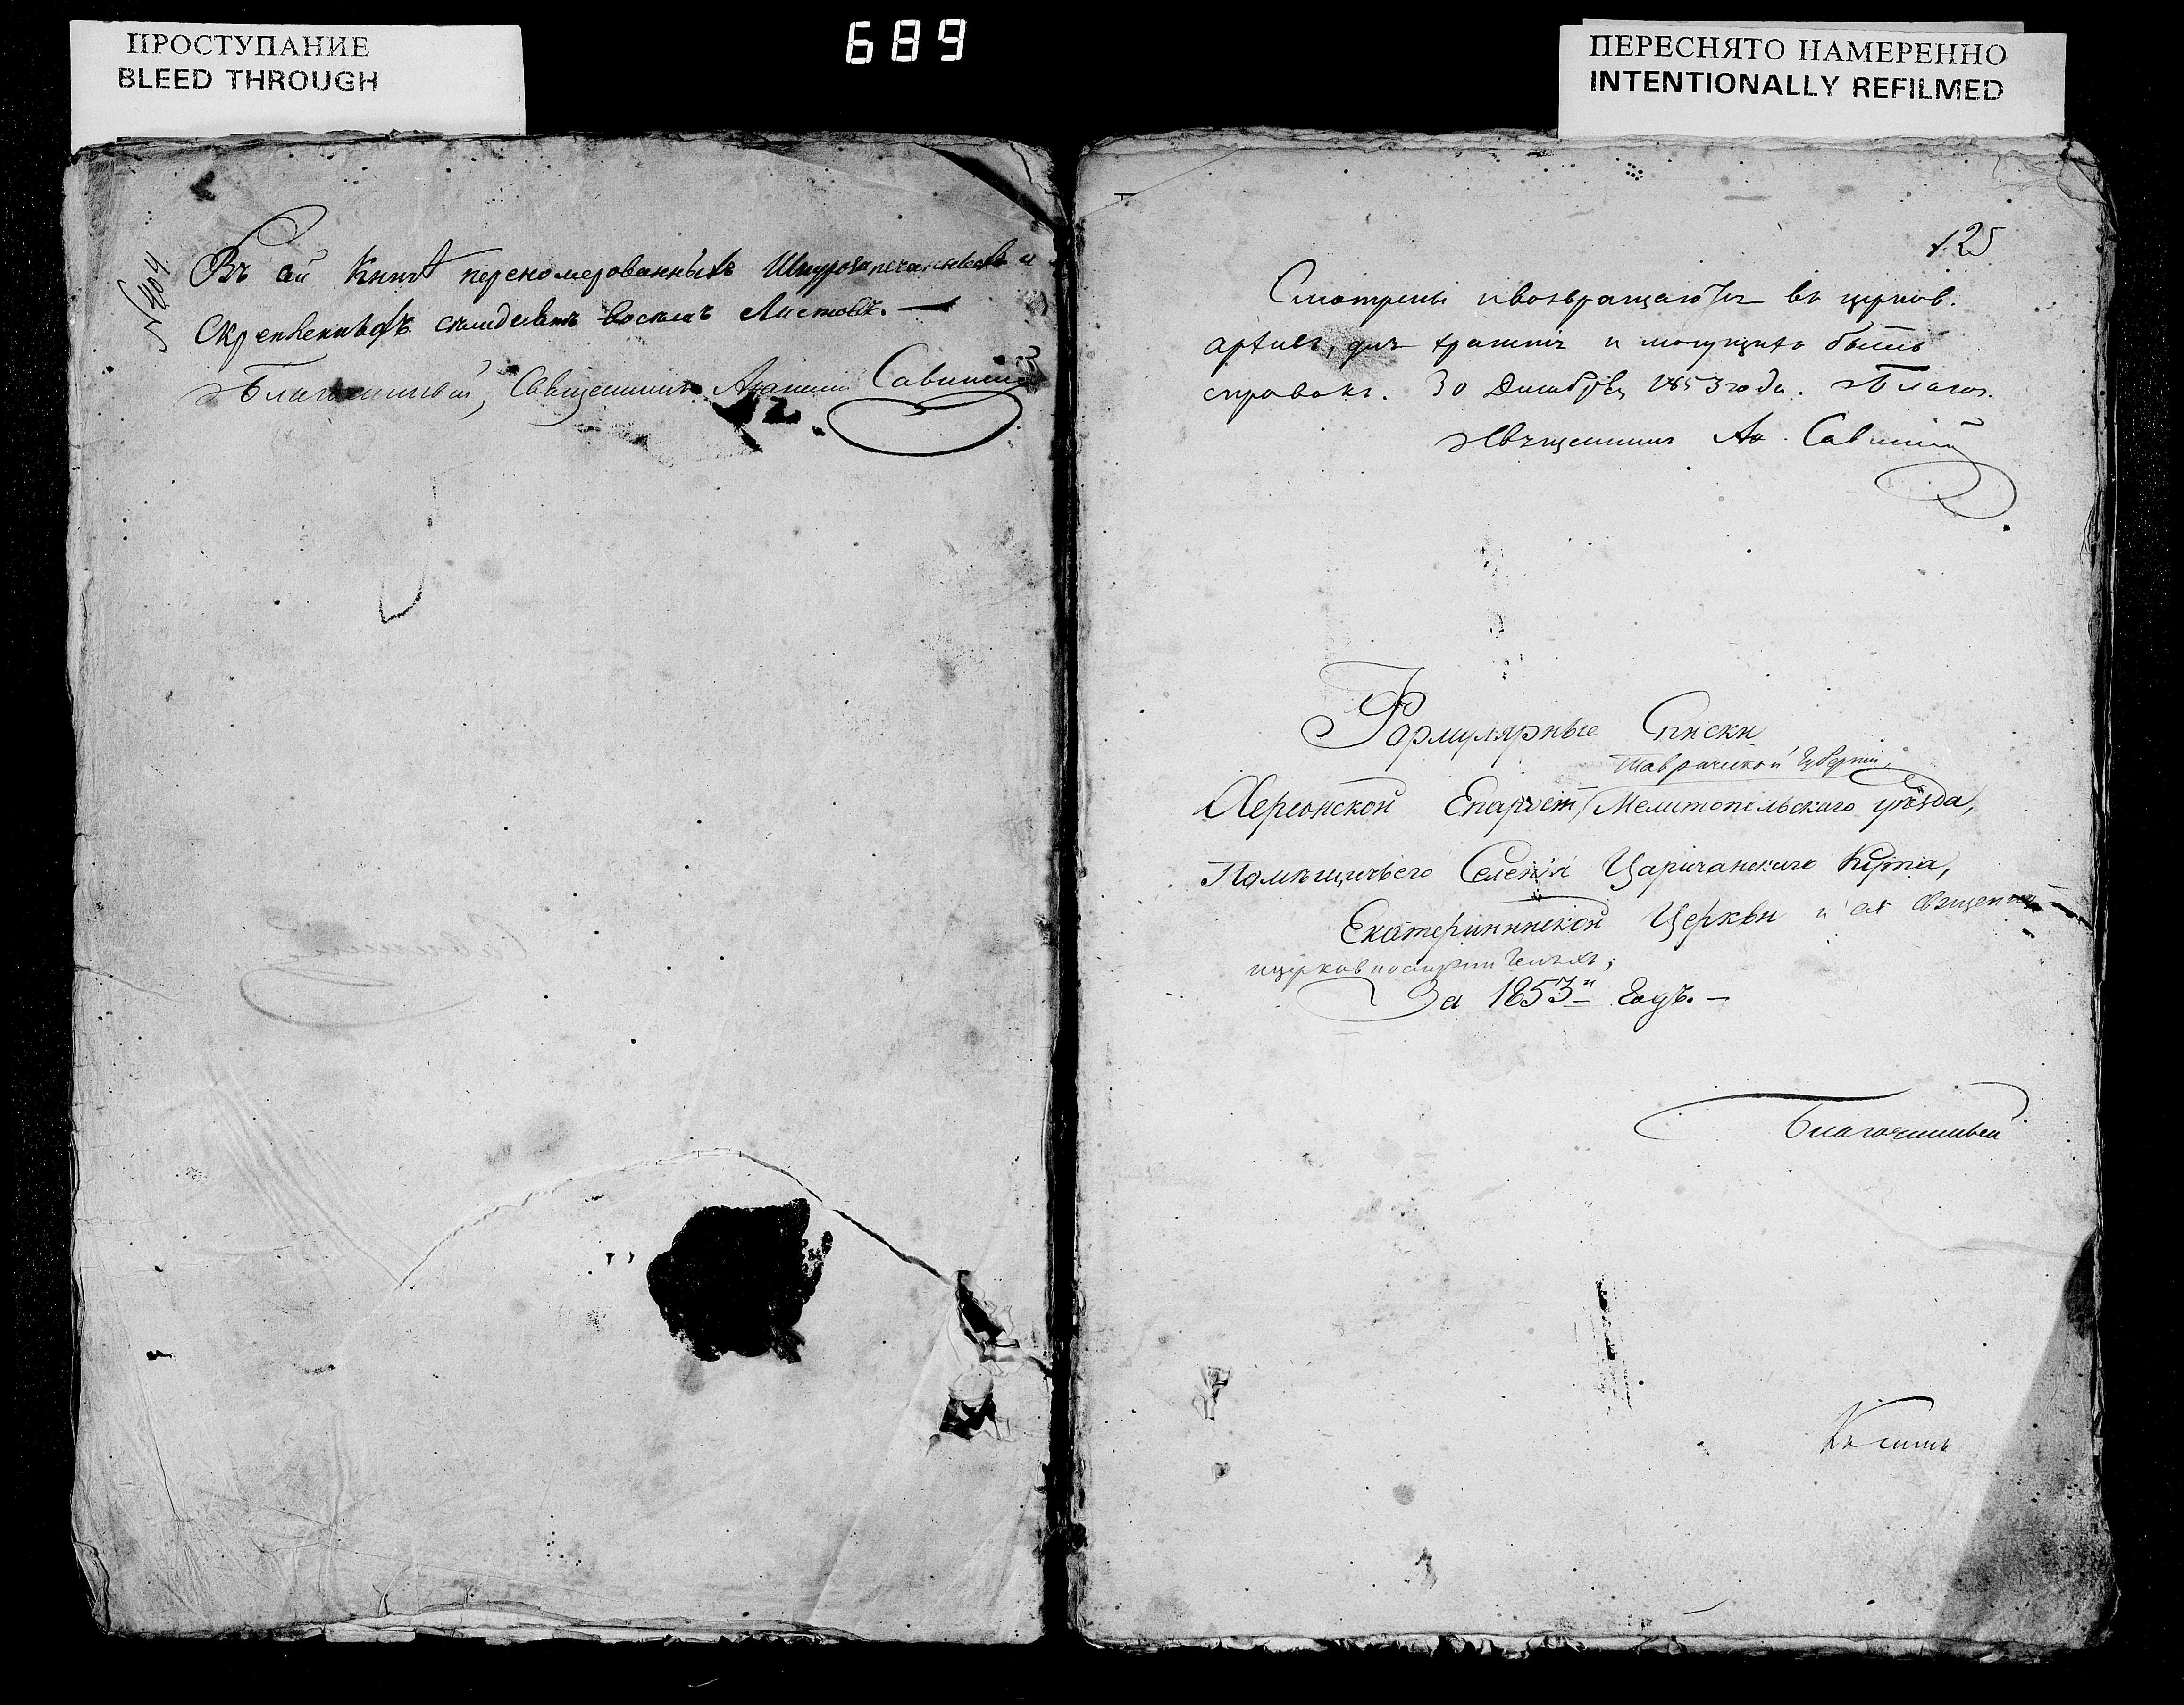 ПРОСТУПАНИЕ
BLEED THROUGH
689
ПЕРЕСНЯТО НАМЕРЕННО
INTENTIONALLY REFILMED
№ 404
Въ сей Книгѣ переномерованныхъ Шнурозапечатанныхъ и
Скрепленныхъ семдесятъ восемь Листовъ. —
Благочинный, Священникъ Савицкій
125
Смотрены и возвращаются въ церков.
архивъ, для храненія и могущихъ быть
справокъ. 30 Декабря 1853 года. Благоч.
Священникъ Ан. Савицкій
Формулярные Списки
Таврической Губерніи,
Херсонской Епархіи, Мелитопольскаго уѣзда,
Помѣщичьего Селенія Царичанскаго Кута,
Екатерининской Церкви и ея Священно
и церковнослужителяхъ;
За 1853й Годъ. —
Благочинный
Къ симъ